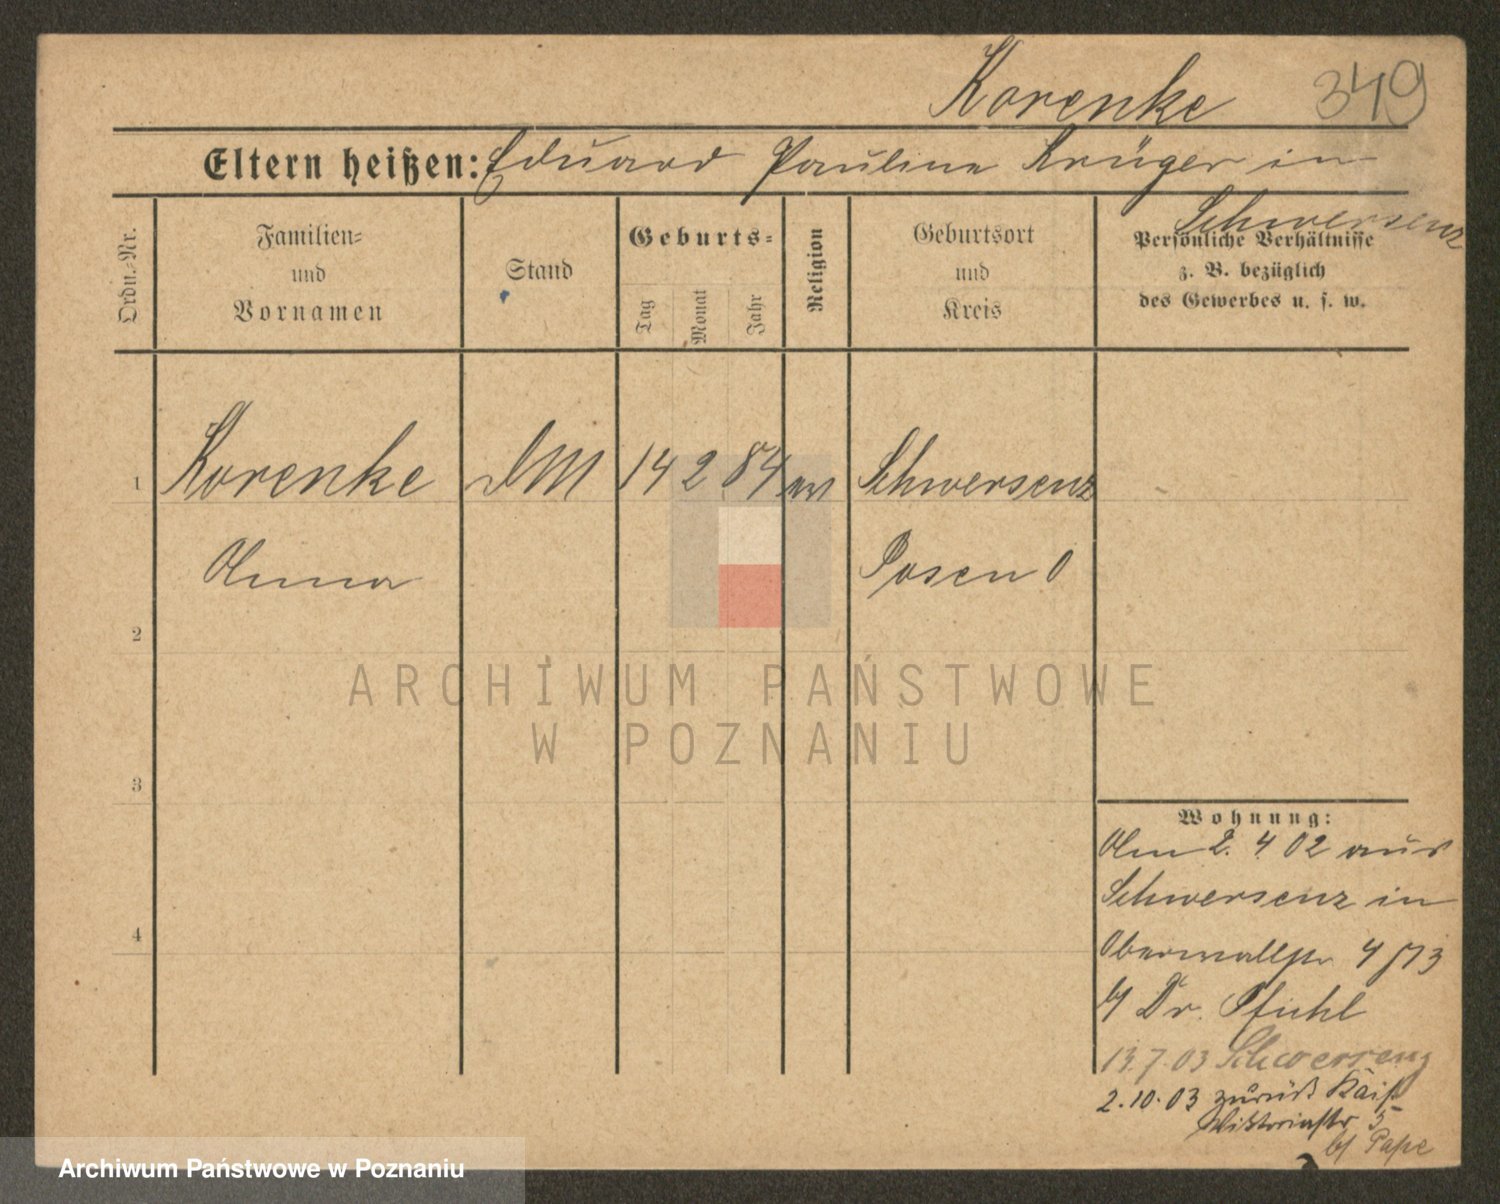 Korenke 349
Eltern heißen: Eduard Pauline Krüger in
Schwersenz
Ordn.-Nr.
Familien-
und
Vornamen
Stand
Geburts-
Tag
Monat
Jahr
Religion
Geburtsort
und
Kreis
Persönliche Verhältnisse
z. B. bezüglich
des Gewerbes u. s. w.
1 Korenke DM 14 2 84 ev Schwersenz
Anna Posen O
2
3
4
Wohnung:
Am 2. 4 02 aus
Schwersenz in
Oberwallstr 4
b/ Dr. Pfuhl
13.7.03 Schwersenz
2.10.03 zurück Kais.
Viktoriastr 5
b/ Pape
ARCHIWUM PAŃSTWOWE
W POZNANIU
Archiwum Państwowe w Poznaniu